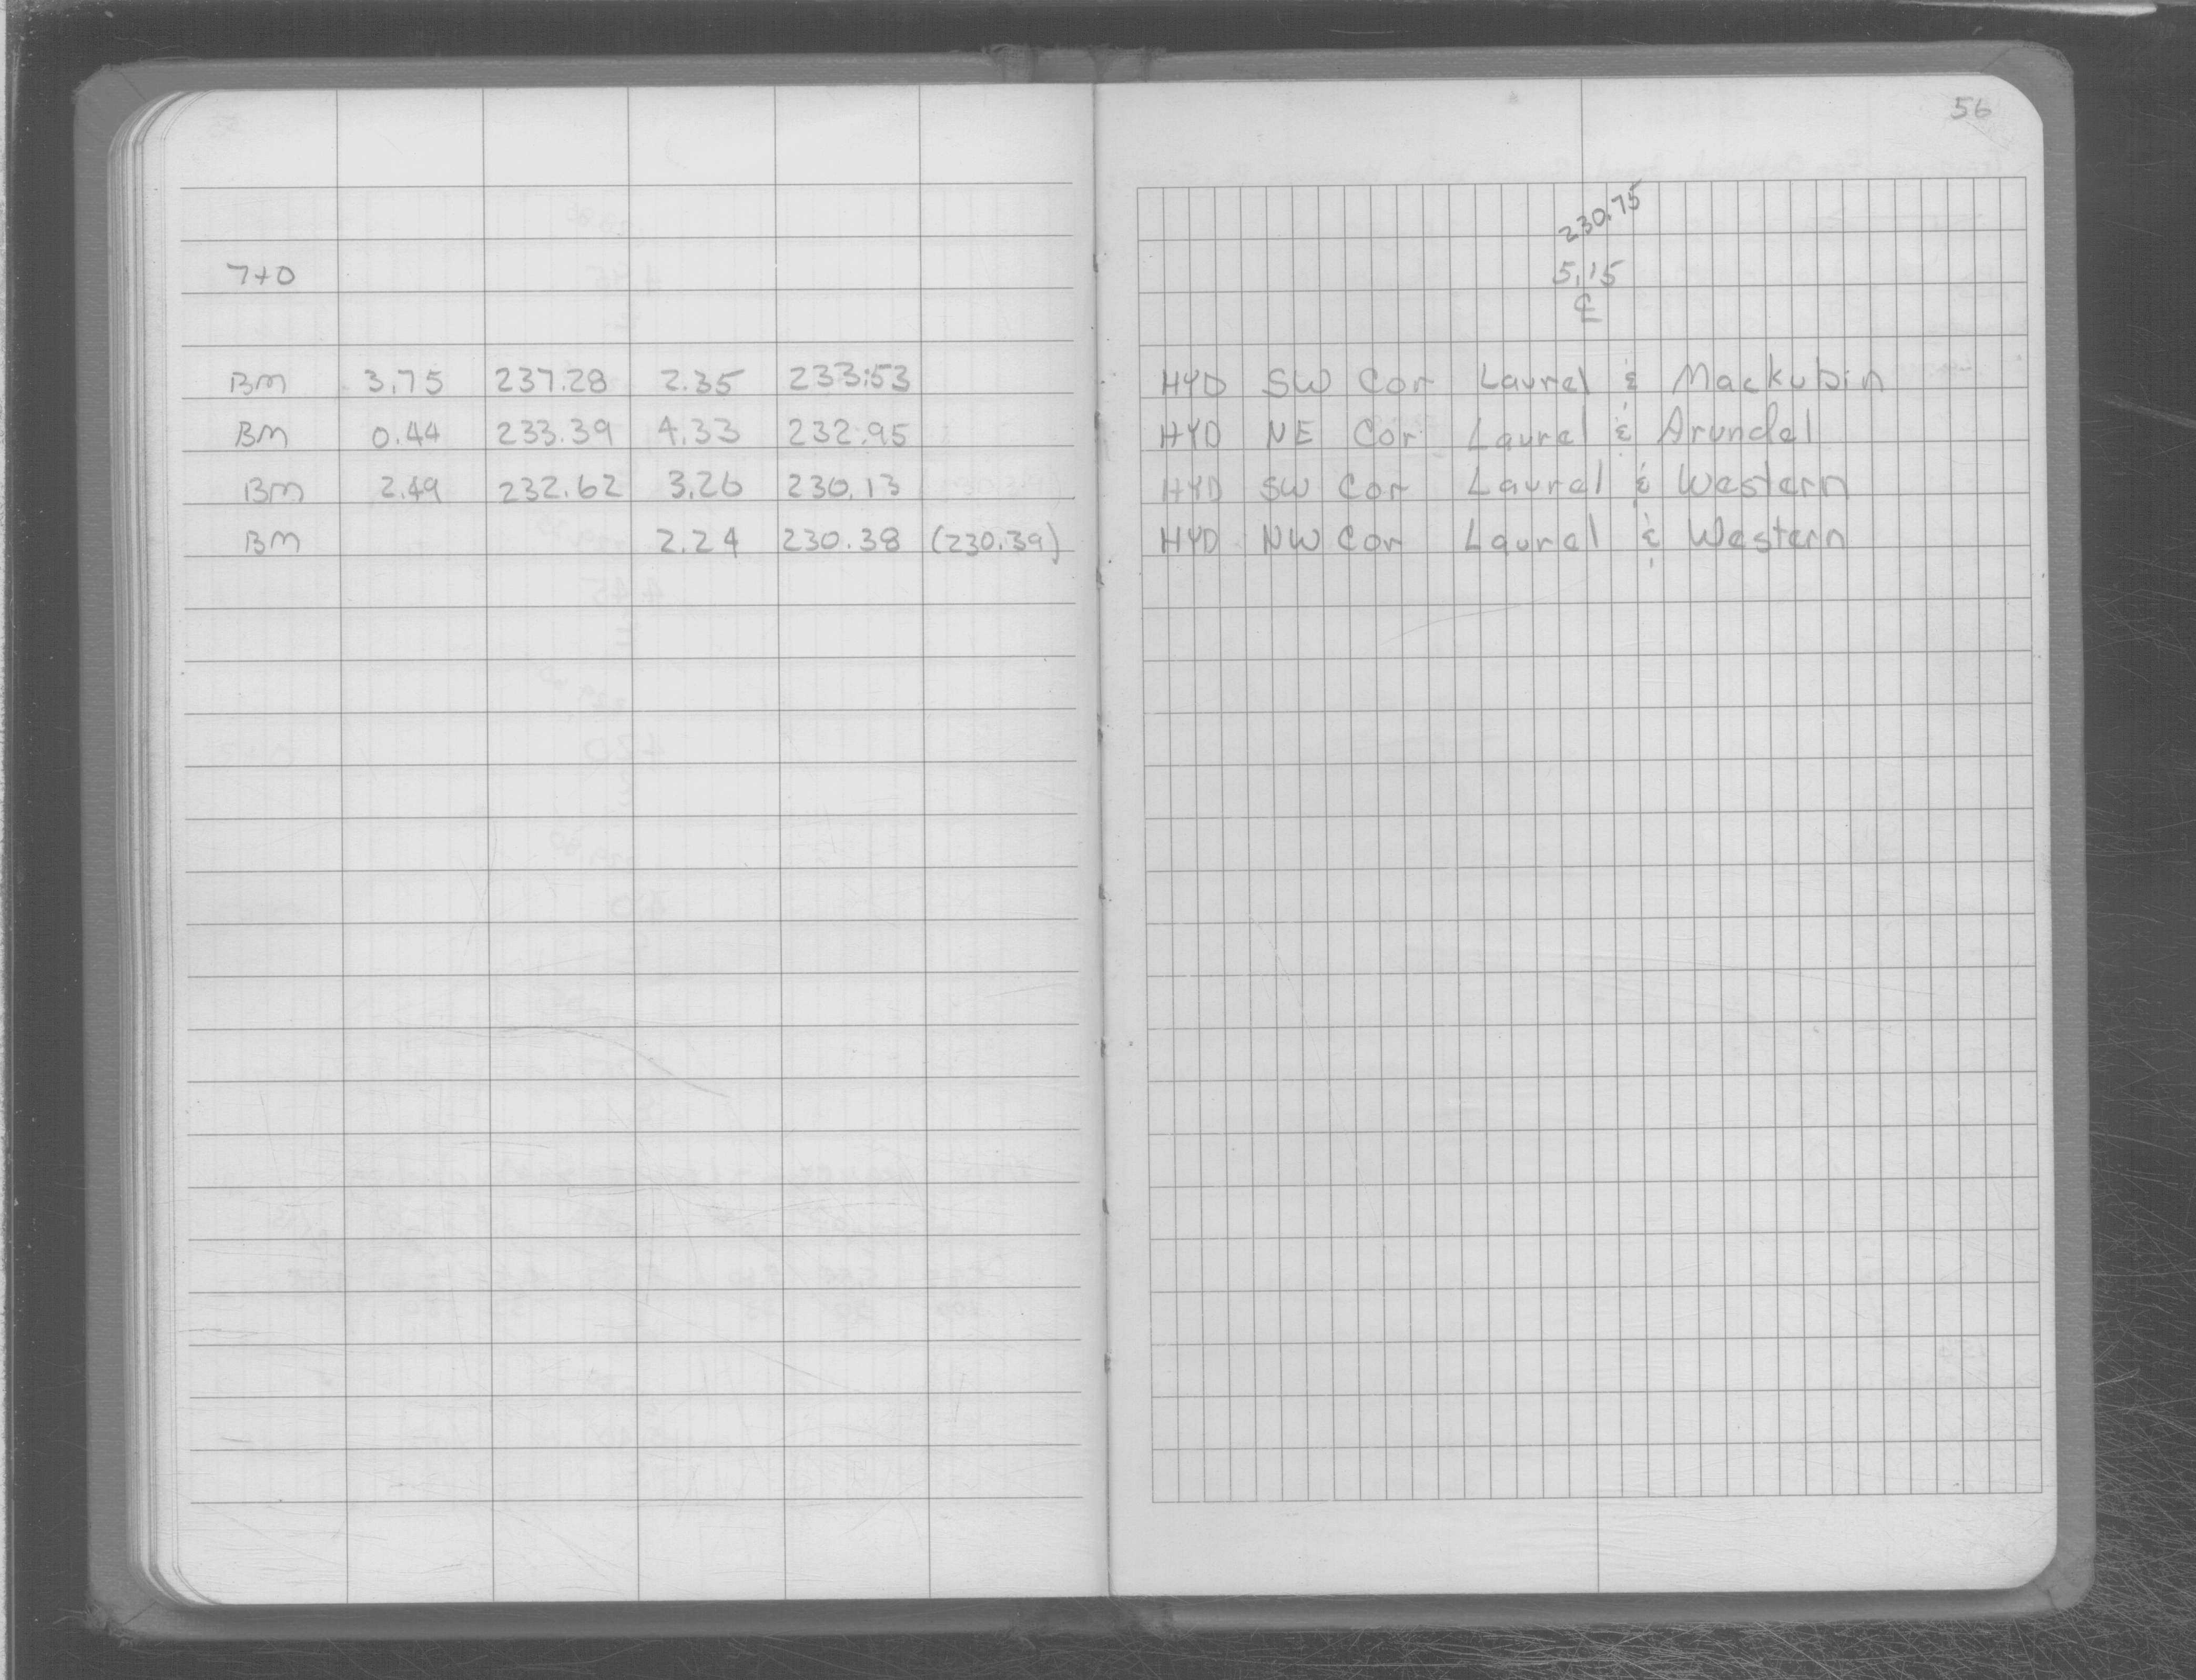 56
230.75
7+0 5.15
℄
BM 3.75 237.28 2.35 233.53 HYD SW Cor Laurel & Mackubin
BM 0.44 233.39 4.33 232.95 HYD NE Cor Laurel & Arundel
BM 2.49 232.62 3.26 230.13 HYD SW Cor Laurel & Western
BM 2.24 230.38 (230.39) HYD NW Cor Laurel & Western